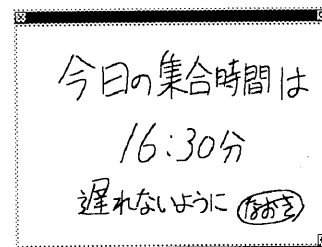 今日の集合時間は
16:30分
遅れないように なおき